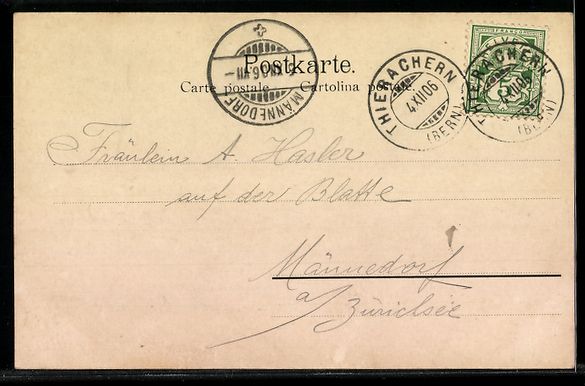 Postkarte.
Carte postale. Cartolina postale.
MÄNNEDORF
THIERACHERN
4.XII.06
(BERN)
THIERACHERN
(BERN)
FRANCO
5
Fräulein A. Hasler
auf der Blatte
Männedorf
a/Zürichsee